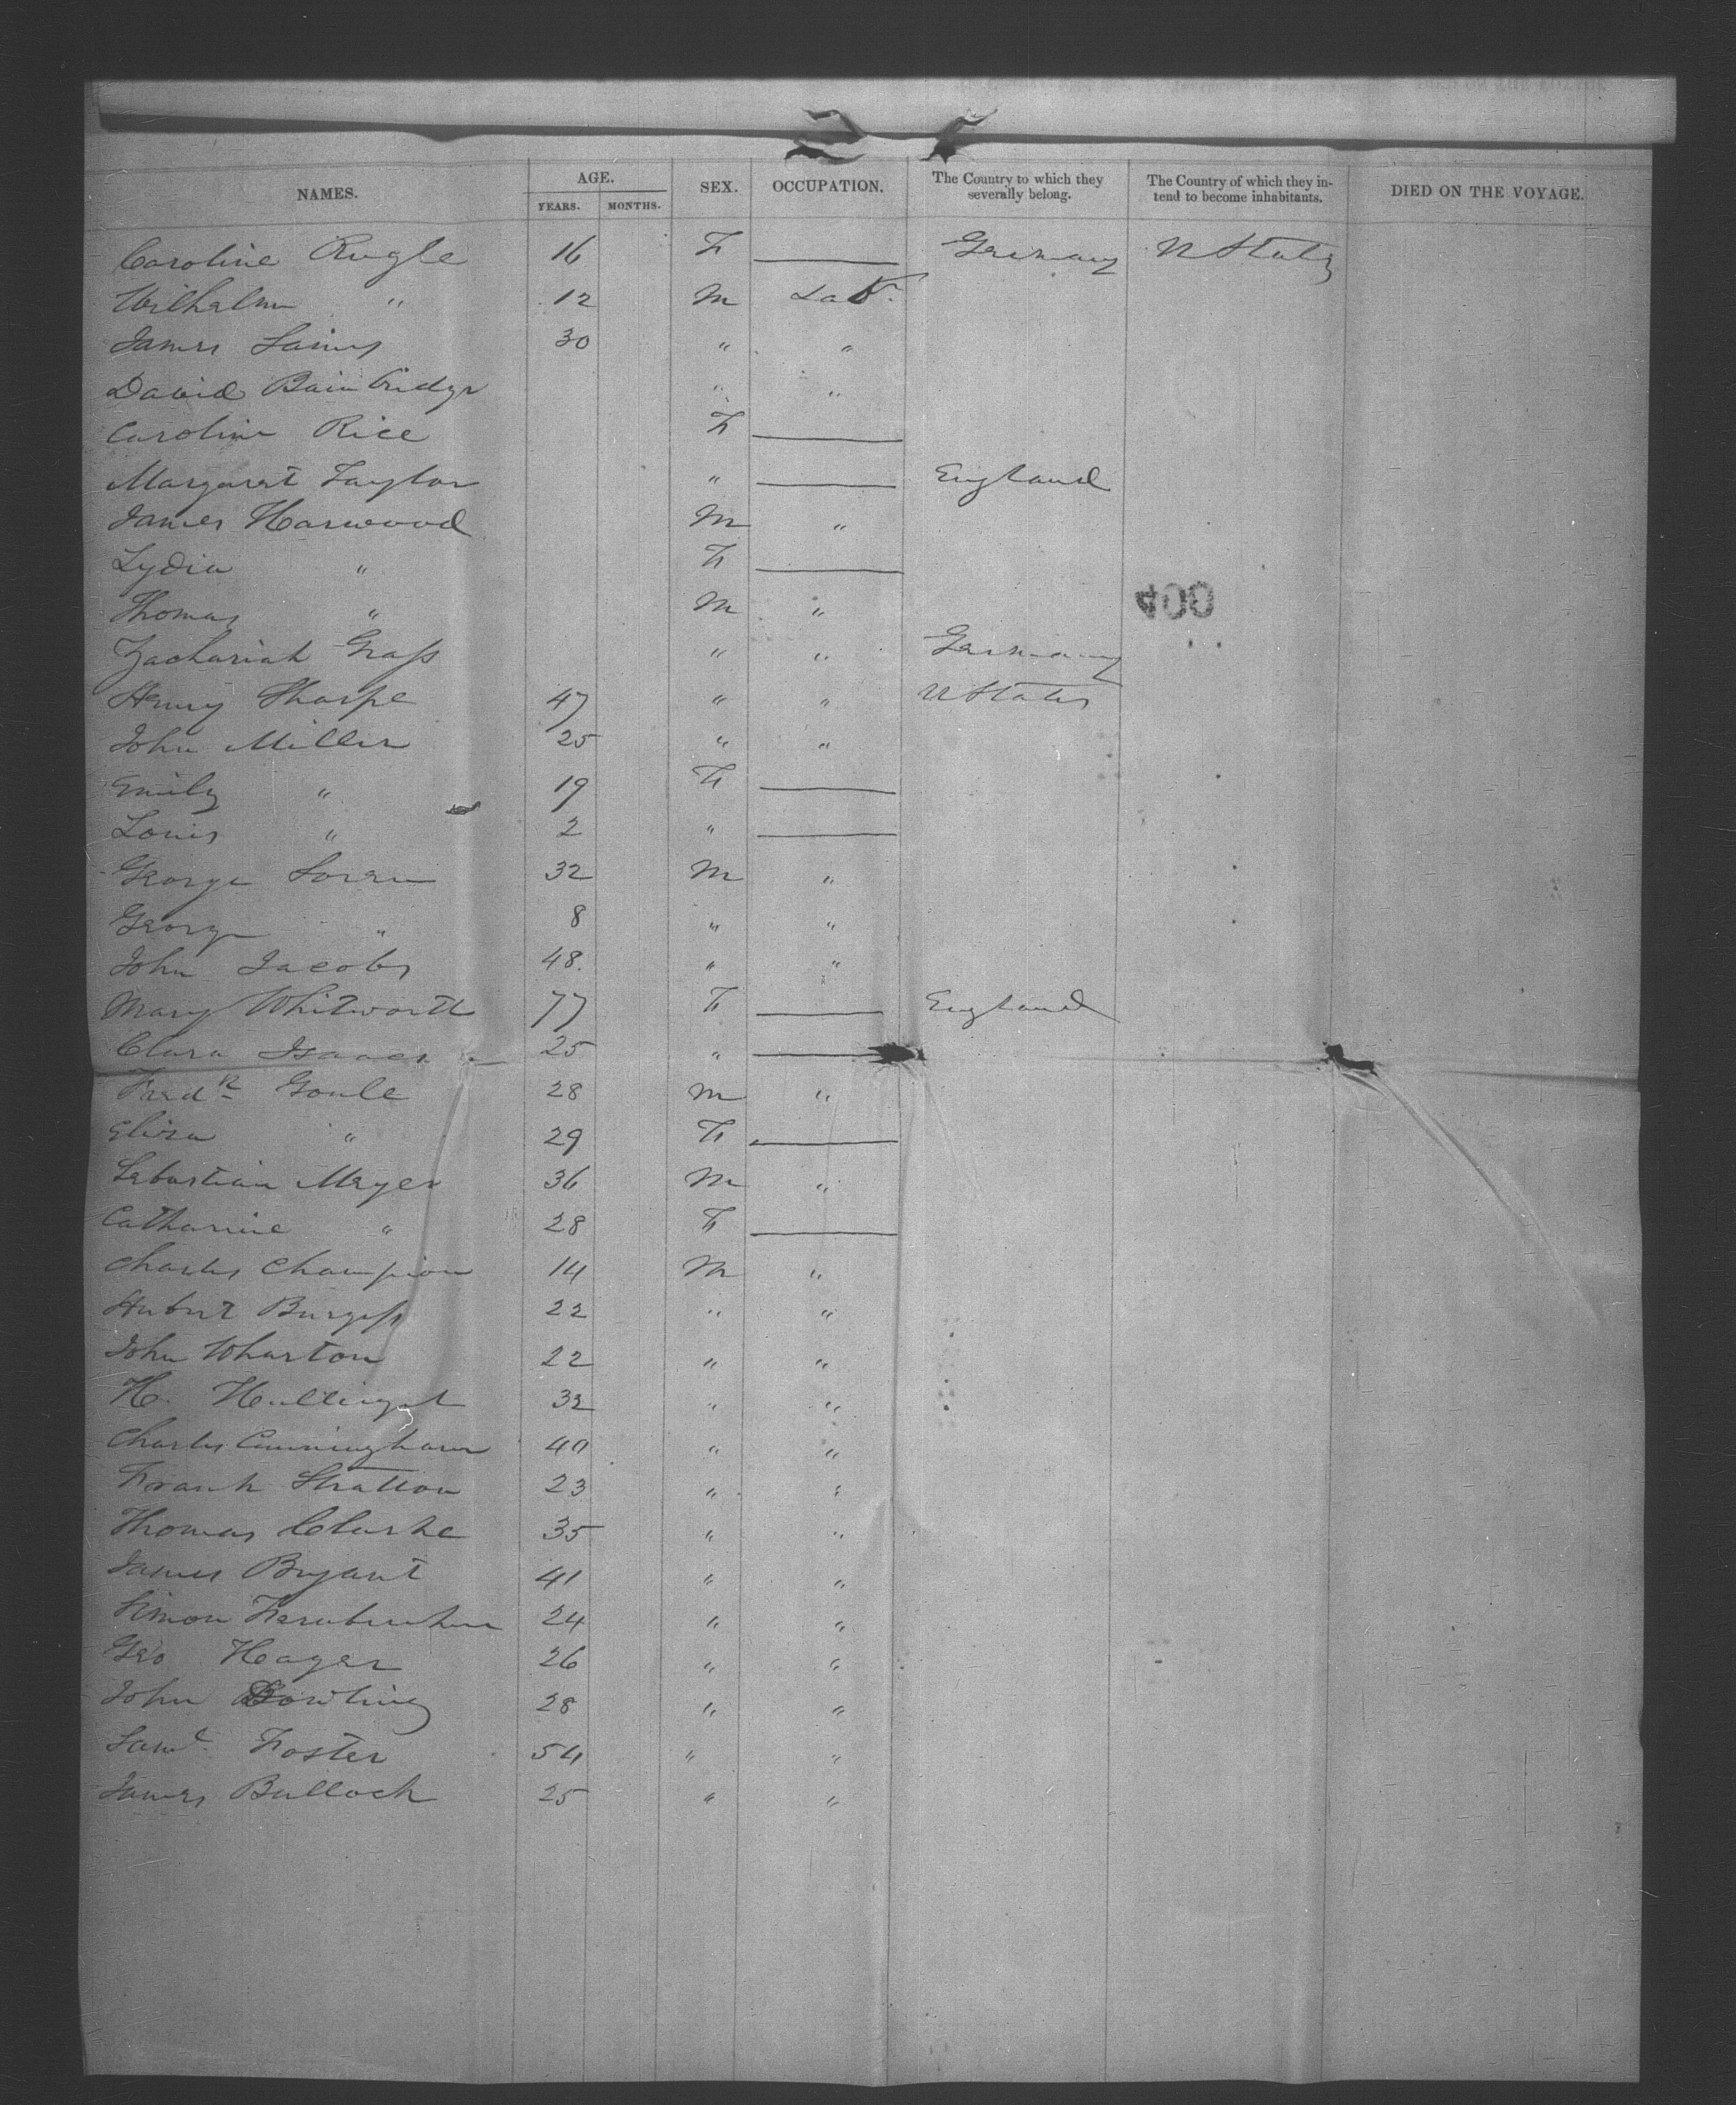 NAMES. AGE. YEARS. MONTHS. SEX. OCCUPATION. The Country to which they severally belong. The Country of which they intend to become inhabitants. DIED ON THE VOYAGE.
Caroline Rugle 16 F Germany U States
Wilhelm " 12 M Labr.
James 30 " "
David Bainbridge " "
Caroline Rice F
Margaret Taylor " England
James Harwood M "
Lydia " F
Thomas " M "
400
Zachariah Grass " " Germany
Henry Sharpe 47 " " U States
John Miller 25 " "
Emily " 19 F
Louis " 2 "
George Soren 32 M "
George " 8 " "
John Jacobs 48. " "
Mary Whitworth 77 F England
Clara Isaacs 25 "
Fredk Goule 28 M "
Eliza " 29 F
Sebastian Meyer 36 M "
Catharine " 28 F
Charles Champion 14 M "
Hubert Burgess 22 " "
John Wharton 22 " "
H. 32 " "
Charles Cunningham 40 " "
Frank Stratton 23 " "
Thomas Clarke 35 " "
James Bryant 41 " "
Simon 24 " "
Geo Hager 26 " "
John Bowling 28 " "
Saml. Foster 54 " "
James Bullock 25 " "